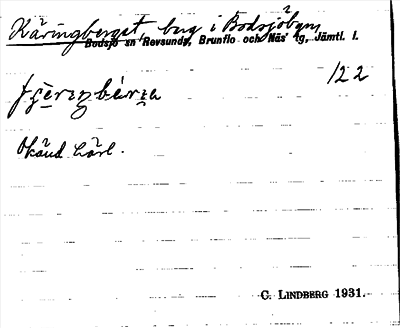 Käringberget berg i Bodsjöbyn
Bodsjö sn Revsunds, Brunflo och Näs tg, Jämtl. l.
122
Okänd härl.
C. LINDBERG 1931.